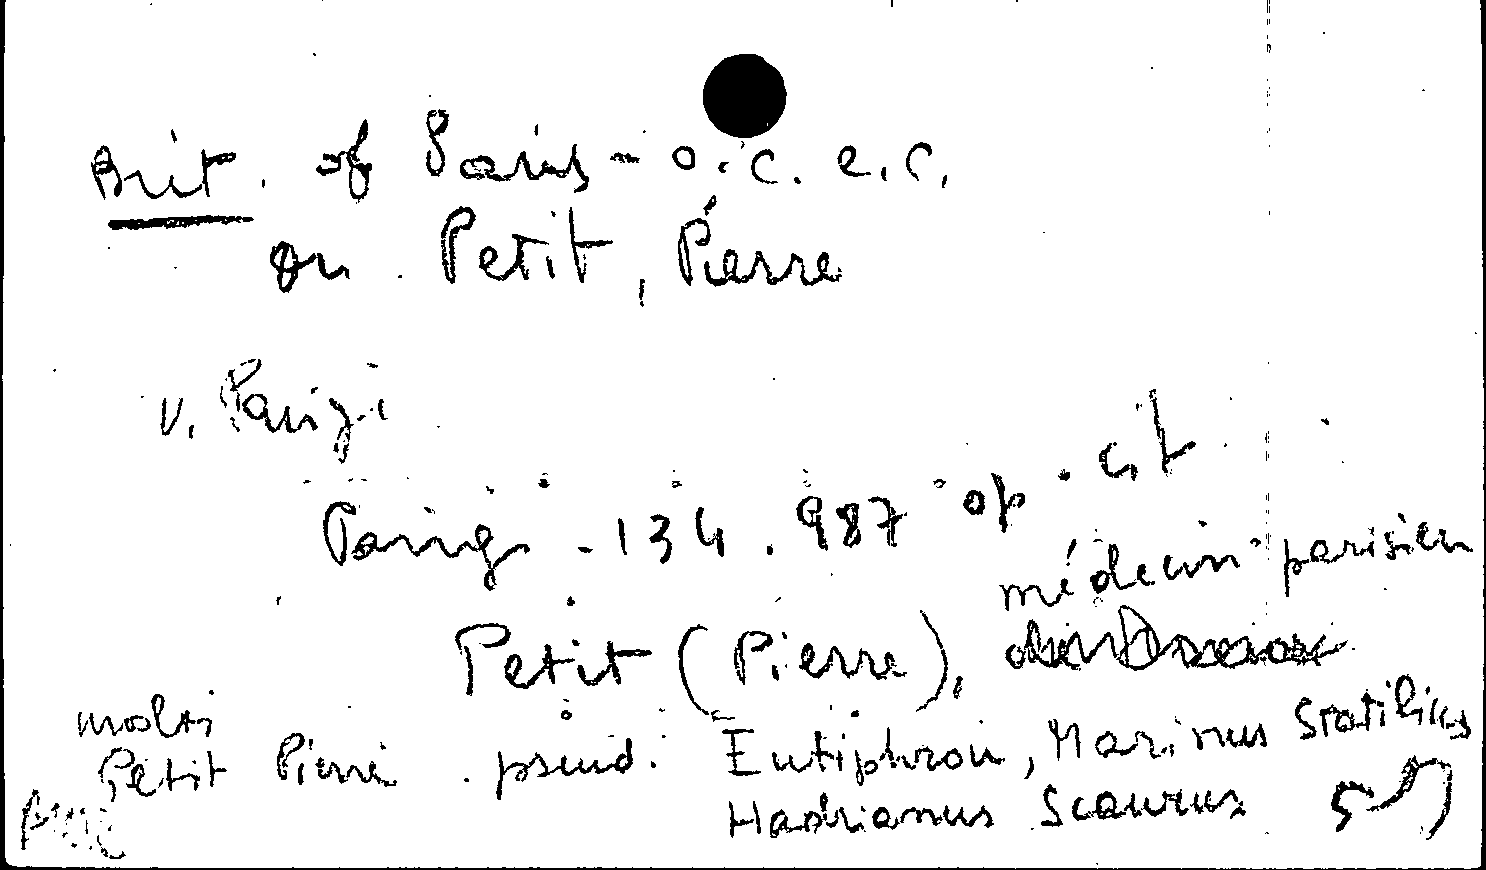 Brit. of Paris - o.c. e.c.
on . Petit, Pierre
v. Parigi
Parigi - 134.987 op. cit
médecin parisien
Petit (Pierre),
molti
Petit Pierre . pseud. Eutiphron, Marinus Statilius
Hadrianus Scaurus